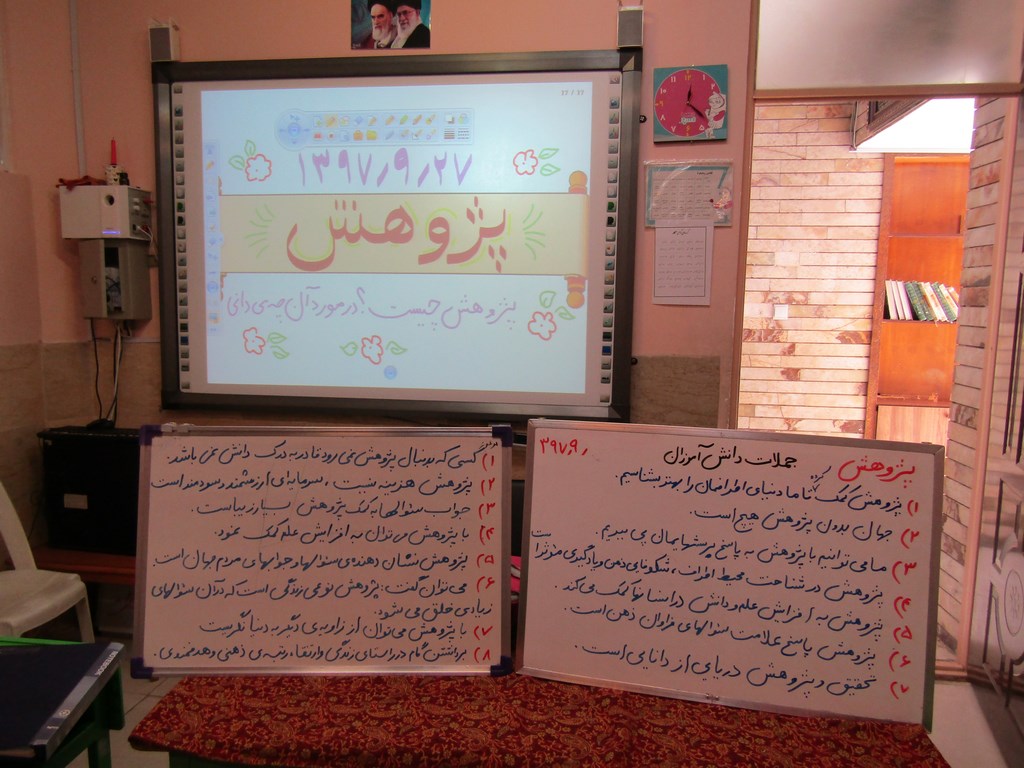 ۲۷ / ۲۷
۱۳۹۷٫۹٫۲۷
پژوهش
پژوهش چیست؟ در مورد آن چه می دانی
پژوهش جملات دانش آموزان ۳۹۷٫۹٫
۱) پژوهش کمک کرد تا ما دنیای اطرافمان را بهتر بشناسیم.
۲) جهان بدون پژوهش هیچ است.
۳) ما می توانیم با پژوهش به پاسخ پرسشهایمان پی ببریم.
۴) پژوهش در شناخت محیط اطراف، شکوفای ذهن و یادگیری موثر است
۵) پژوهش به افزایش علم و دانش در انسانها کمک می کند.
۶) پژوهش پاسخ علامت سئوالهای فراوان ذهن است.
۷) تحقیق و پژوهش دریایی از دانایی است.
۱) کسی که بدنبال پژوهش نمی رود قادر به درک دانش نمی باشد.
۲) پژوهش هزینه نیست، سرمایه ای ارزشمند و سودمند است
۳) جواب سئوالها به کمک پژوهش بسیار زیباست.
۴) با پژوهش می توان به افزایش علم کمک نمود.
۵) پژوهش نشان دهنده ی سئوالها و جوابهای مردم جهان است.
۶) می توان گفت: پژوهش نوعی زندگی است که در آن سئوالهای
زیادی خلق می شود.
۷) با پژوهش می توان از زاویه ی دیگر به دنیا نگریست
۸) برداشتن گام در راستای زندگی و ارتقاء رتبه ی ذهنی و هدفمندی.